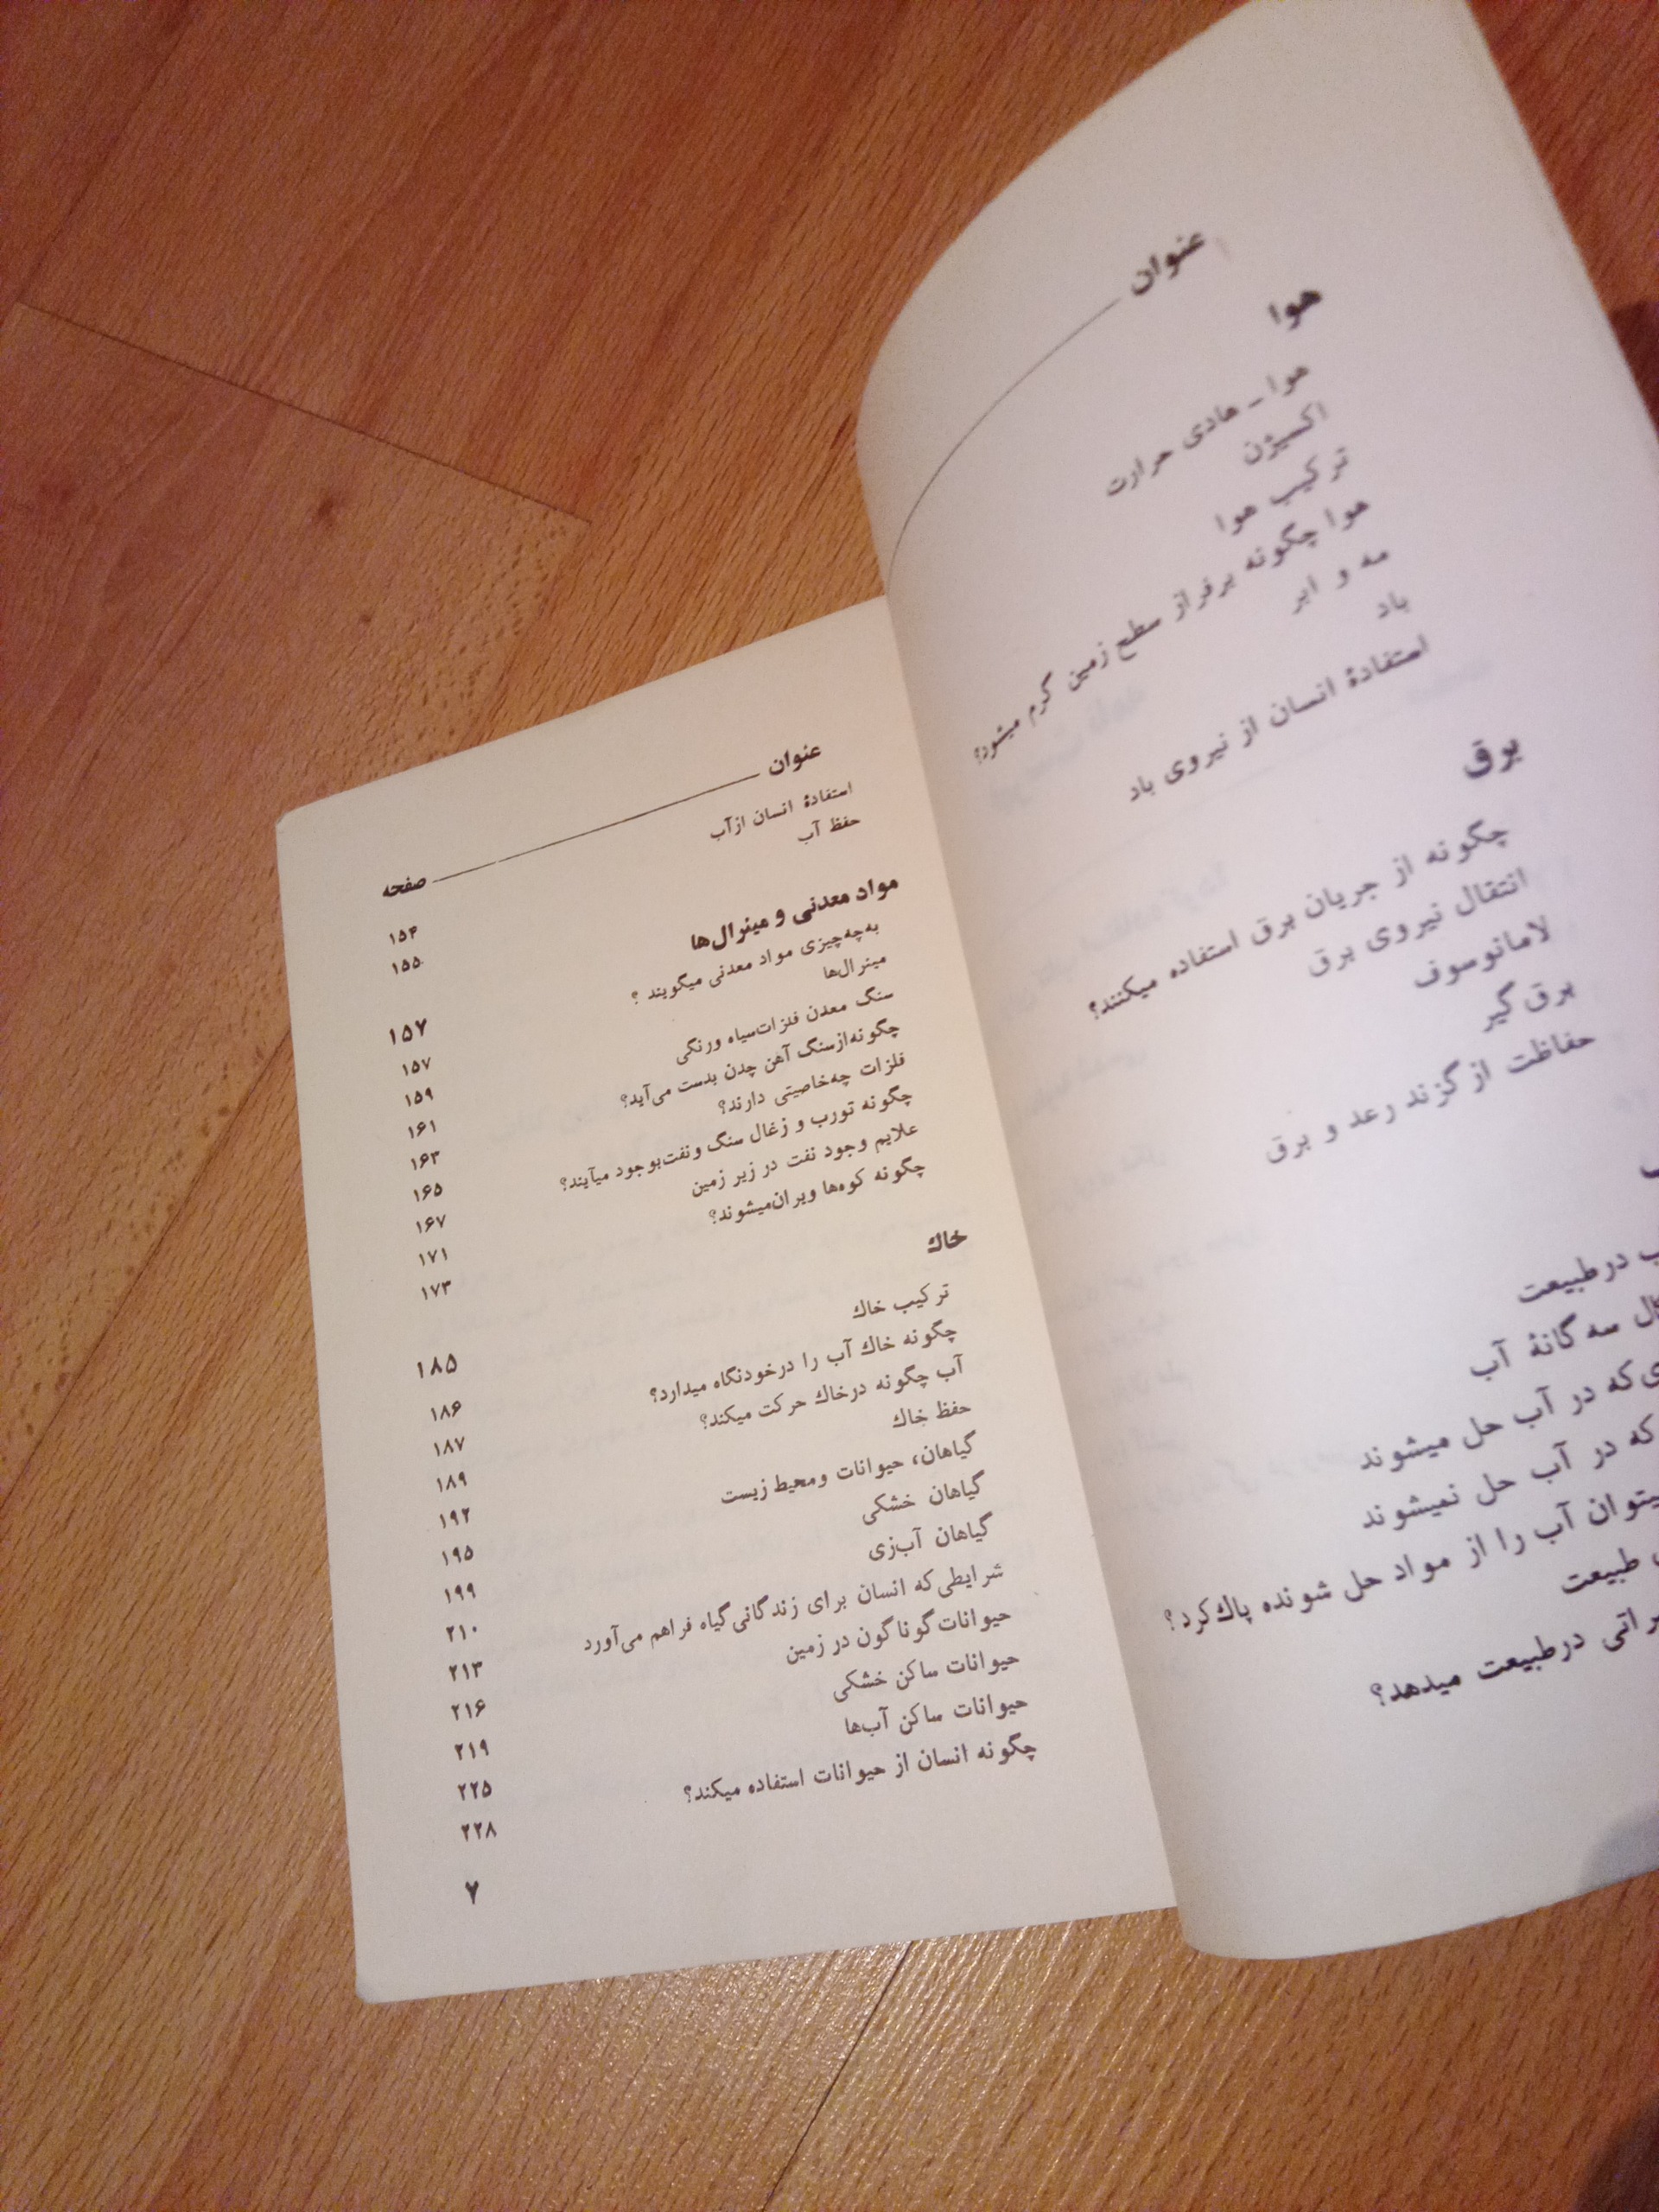 عنوان
هوا
هوا ـ هادی حرارت
اکسیژن
ترکیب هوا
هوا چگونه برفراز سطح زمین گرم میشود؟
مه و ابر
باد
استفادهٔ انسان از نیروی باد
برق
چگونه از جریان برق استفاده میکنند؟
انتقال نیروی برق
لامانوسوف
برق‌گیر
حفاظت از گزند رعد و برق
درطبیعت
سه گانهٔ آب
که در آب حل میشوند
که در آب حل نمیشوند
آب را از مواد حل شونده پاك‌کرد؟
طبیعت
درطبیعت میدهد؟
عنوان صفحه
استفادهٔ انسان ازآب ۱۵۴
حفظ آب ۱۵۵
مواد معدنی و مینرال‌ها ۱۵۷
به‌چه‌چیزی مواد معدنی میگویند ؟ ۱۵۷
مینرال‌ها ۱۵۹
سنگ معدن فلزات‌سیاه ورنگی ۱۶۱
چگونه‌ازسنگ آهن چدن بدست می‌آید؟ ۱۶۳
فلزات چه‌خاصیتی دارند؟ ۱۶۵
چگونه تورب و زغال سنگ ونفت‌بوجود میآیند؟ ۱۶۷
علایم وجود نفت در زیر زمین ۱۷۱
چگونه کوه‌ها ویران‌میشوند؟ ۱۷۳
خاك ۱۸۵
ترکیب خاك ۱۸۶
چگونه خاك آب را درخودنگاه میدارد؟ ۱۸۷
آب چگونه درخاك حرکت میکند؟ ۱۸۹
حفظ خاك ۱۹۲
گیاهان، حیوانات ومحیط زیست ۱۹۵
گیاهان خشکی ۱۹۹
گیاهان آب‌زی ۲۱۰
شرایطی‌که انسان برای زندگانی‌گیاه فراهم می‌آورد ۲۱۳
حیوانات‌گوناگون در زمین ۲۱۶
حیوانات ساکن خشکی ۲۱۹
حیوانات ساکن آب‌ها ۲۲۵
چگونه انسان از حیوانات استفاده میکند؟ ۲۲۸
۷